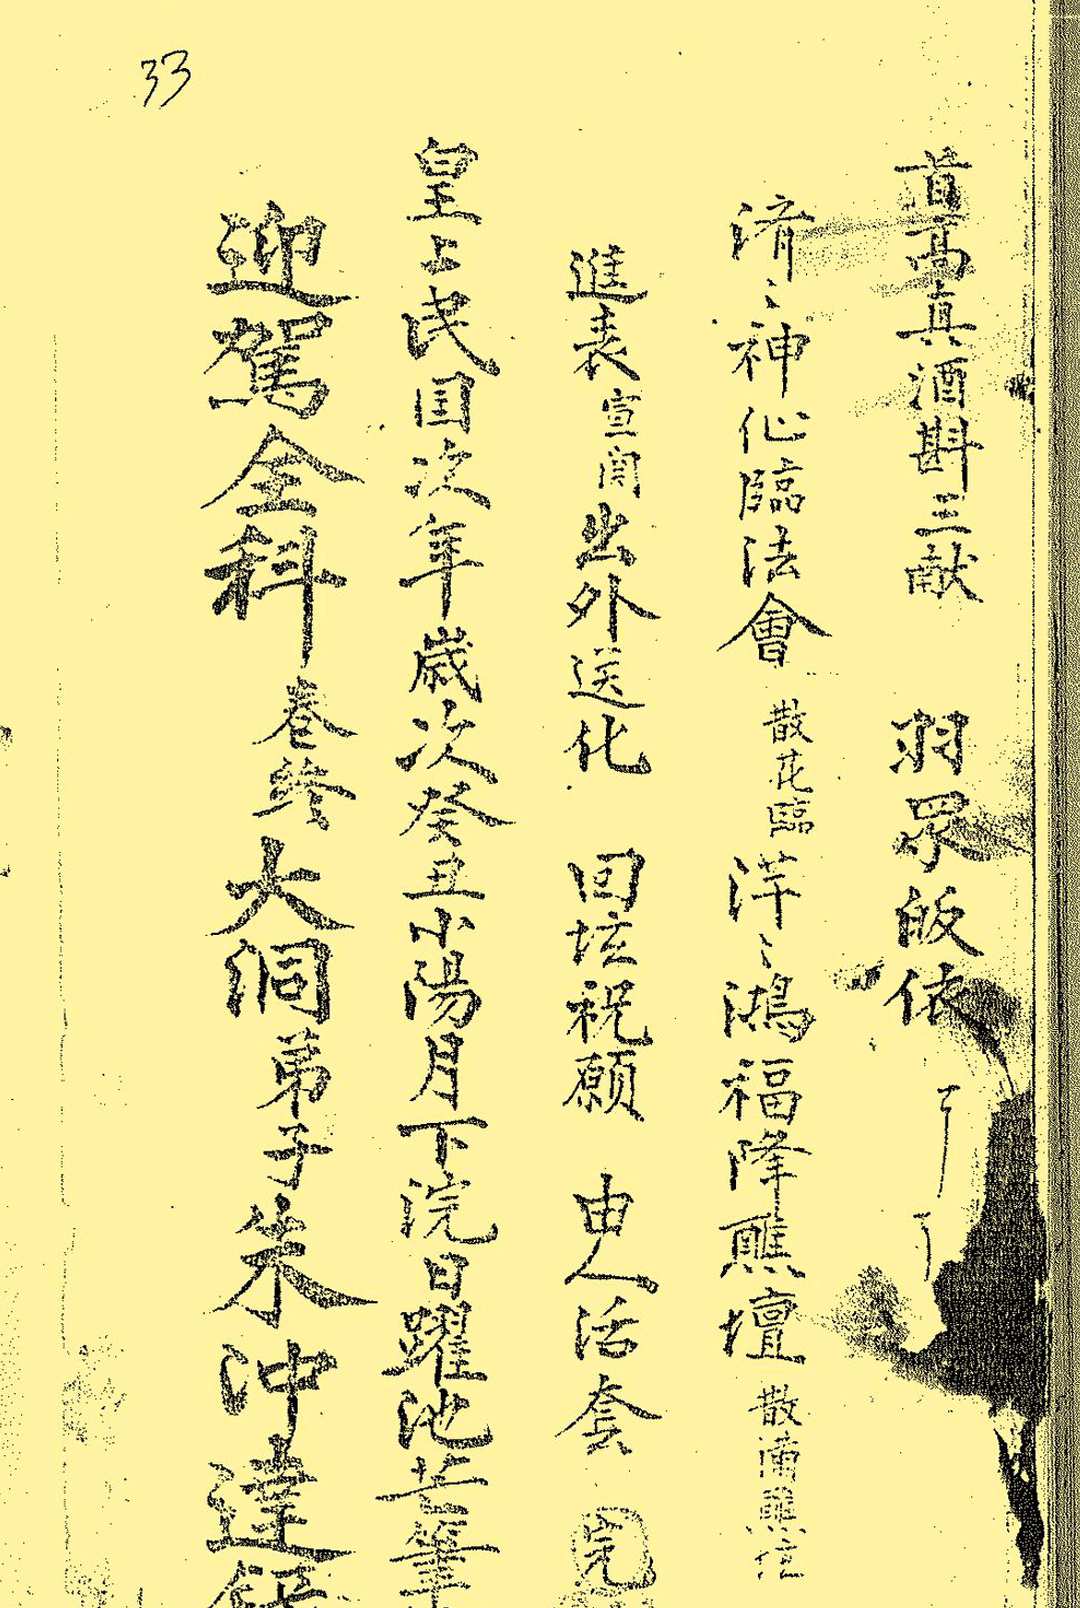 33
首高真酒斟三献 羽眾皈依
濟〻神仙臨法會 散花臨 洋〻鴻福降醮壇 散滿醮位
進表宣關出外送化 回坛祝願 由人活套 完
皇上民国次年歲次癸丑小陽月下浣日躍池芒筆
迎駕全科卷終大洞弟子朱沖達